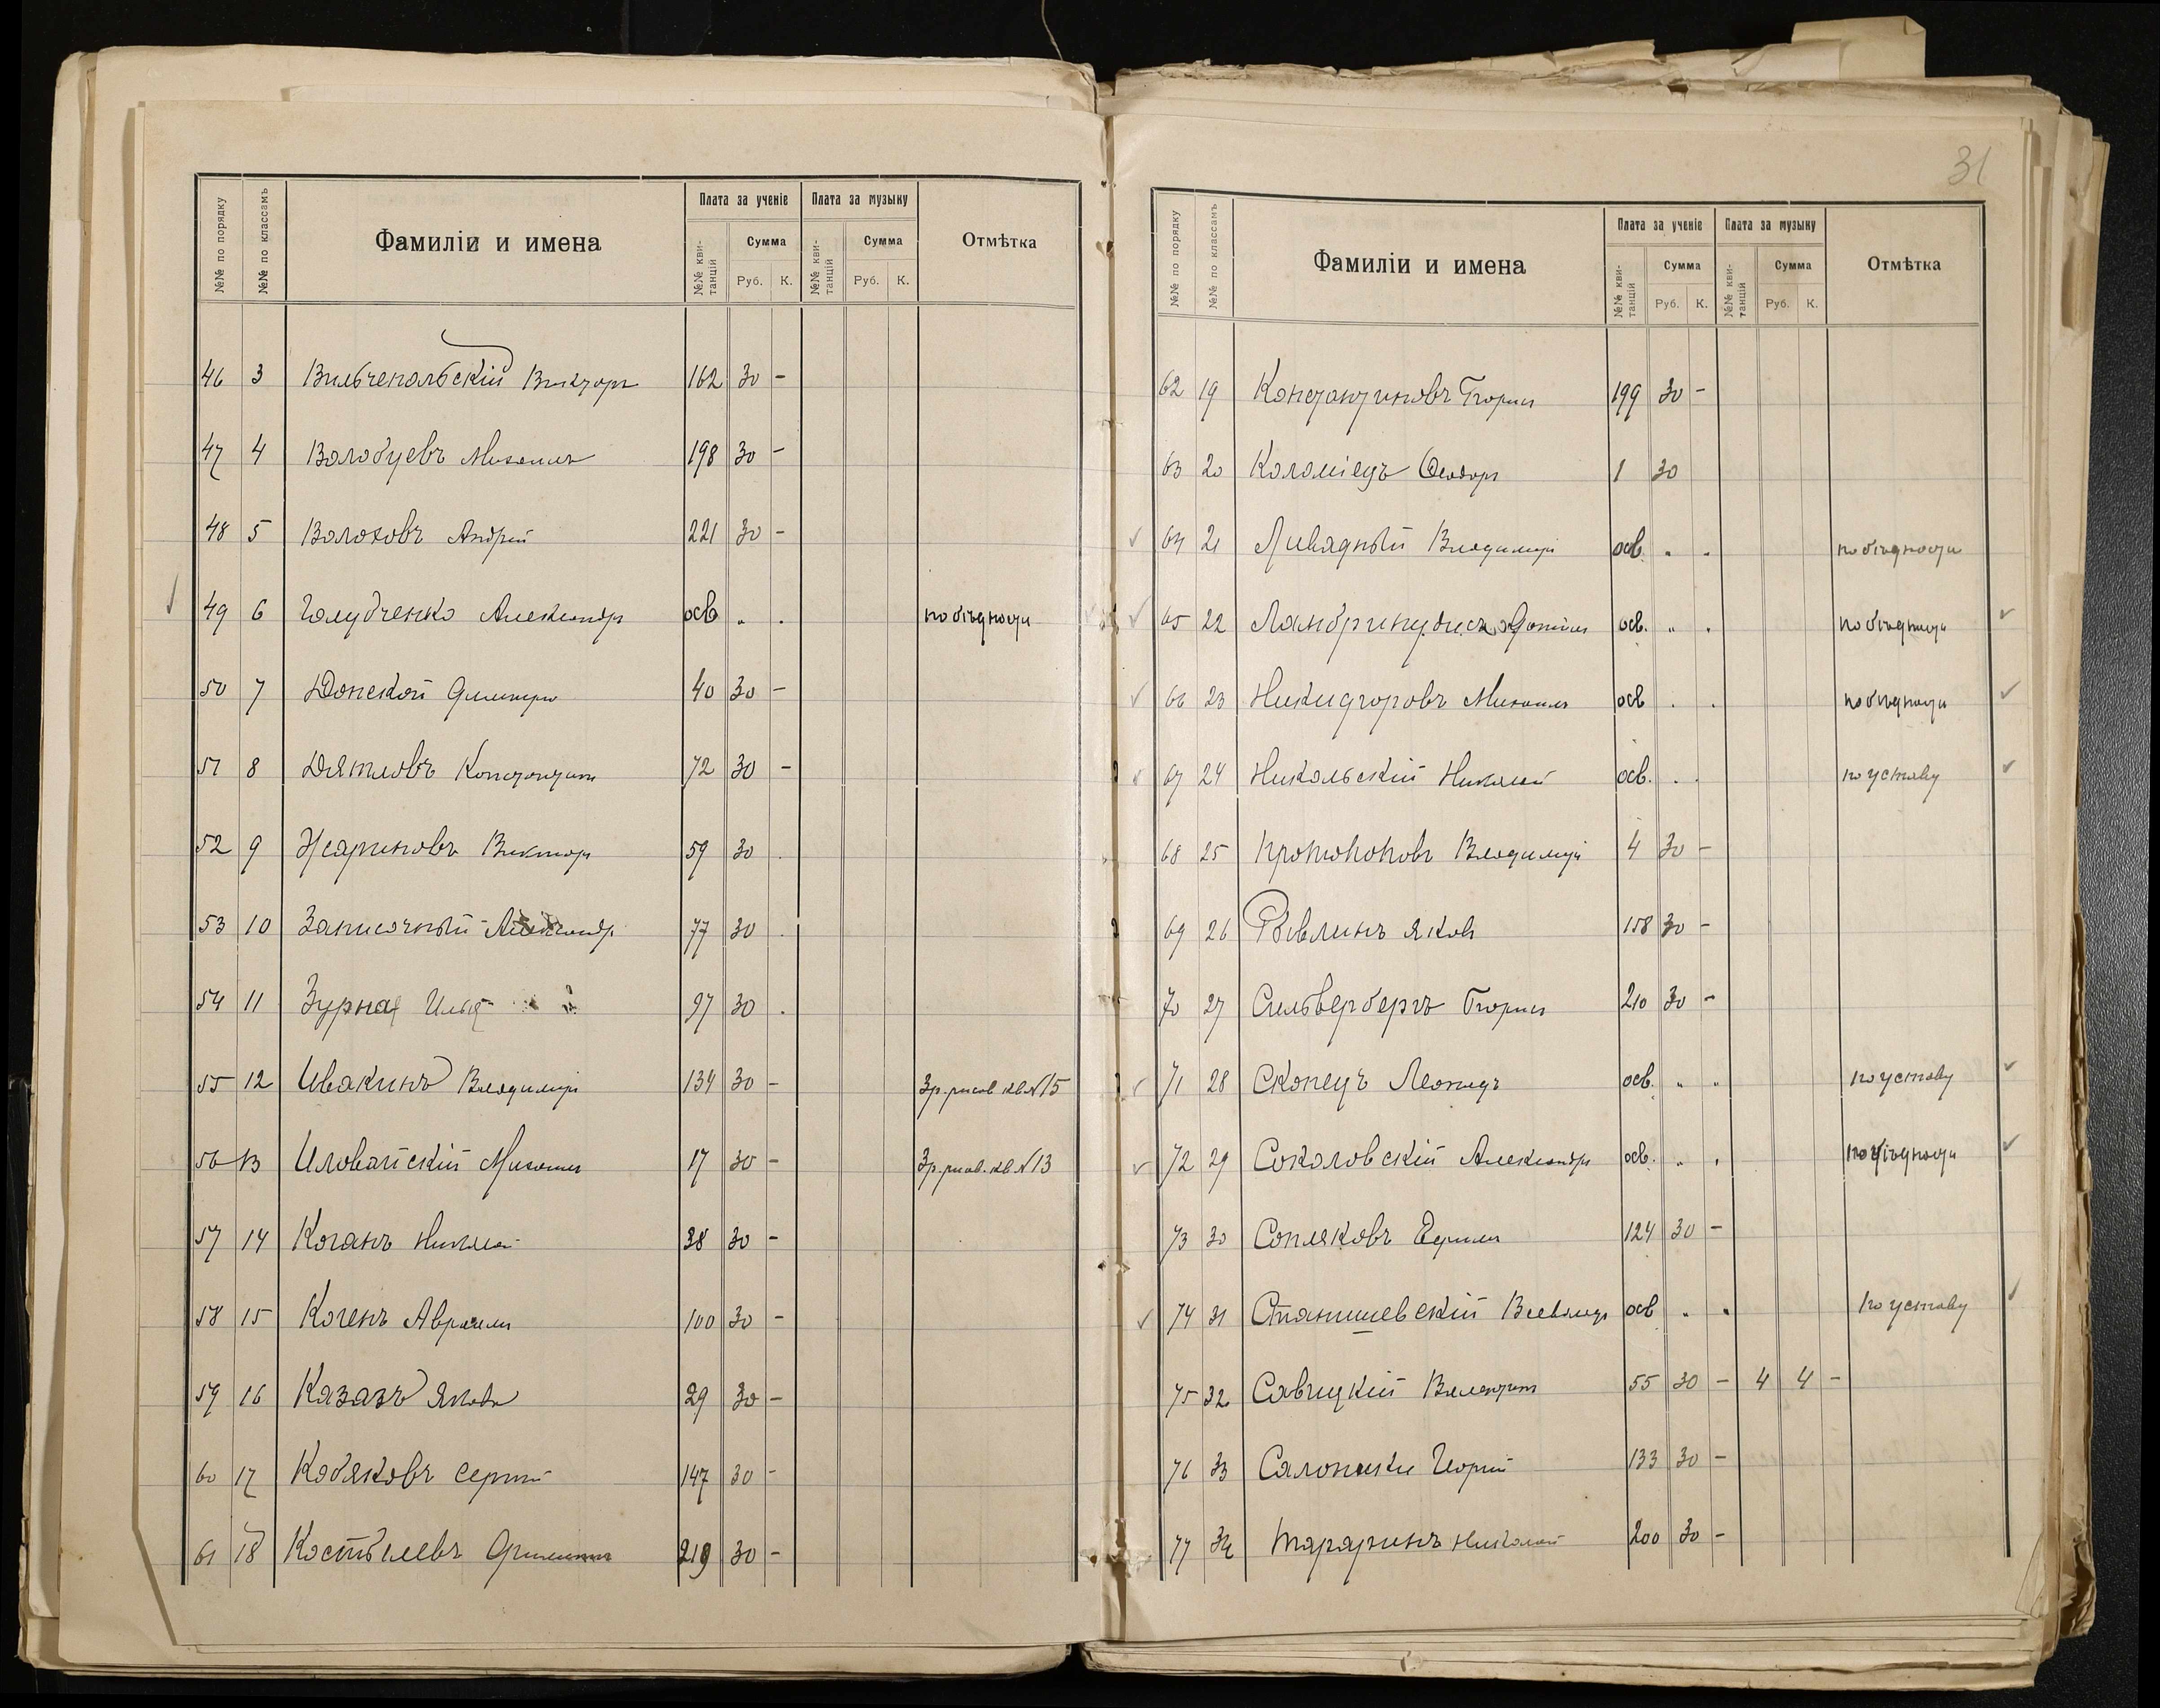 №№ по порядку №№ по классамъ Фамиліи и имена Плата за ученіе Плата за музыку Отмѣтка
№№ кви-танцій Сумма №№ кви-танцій Сумма
Руб. К. Руб. К.
46 3 Вильчепольскій Викторъ 162 30 -
47 4 Волобуевъ Михаилъ 198 30 -
48 5 Волоховъ Андрей 221 30 -
49 6 Голубченко Александръ осв. " . по бѣдности
50 7 Донской Димитрій 40 30 -
51 8 Дятловъ Константинъ 72 30 -
52 9 Жариновъ Викторъ 59 30 .
53 10 Записочный Александръ 77 30 .
54 11 Зурна Илья 97 30 .
55 12 Ивакинъ Владимиръ 134 30 - Зр. рисов кв. № 15
56 13 Иловайскій Михаилъ 17 30 - Зр. рисов. кв. № 13
57 14 Коганъ Николай 38 30 -
58 15 Когенъ Авраамъ 100 30 -
59 16 Казазъ Яковъ 29 30 -
60 17 Кобяковъ Сергей 147 30 -
61 18 Костылевъ 219 30 -
31
№№ по порядку №№ по классамъ Фамиліи и имена Плата за ученіе Плата за музыку Отмѣтка
№№ кви-танцій Сумма №№ кви-танцій Сумма
Руб. К. Руб. К.
62 19 Константиновъ Борисъ 199 30 -
63 20 Коломіецъ Ѳеодоръ 1 30
64 21 Ливадный Владимиръ осв. " . по бѣдности
65 22 осв. " . по бѣдности
66 23 Никифоровъ Михаилъ осв . . по бѣдности
67 24 Никольскій Николай осв. . . по уставу
68 25 Владимиръ 4 30 -
69 26 Рѣвлинъ Яковъ 158 30 -
70 27 Сильвербергъ Борисъ 210 30 -
71 28 Скопецъ Леонидъ осв. " " по уставу
72 29 Соколовскій Александръ осв. " . по бѣдности
73 30 Сопляковъ Ефимъ 124 30 -
74 31 Станишевскій Всеволодъ осв " " по уставу
75 32 Савицкій Валентинъ 55 30 - 4 4 -
76 33 Салоники Георгій 133 30 -
77 34 Тараринъ Николай 200 30 -